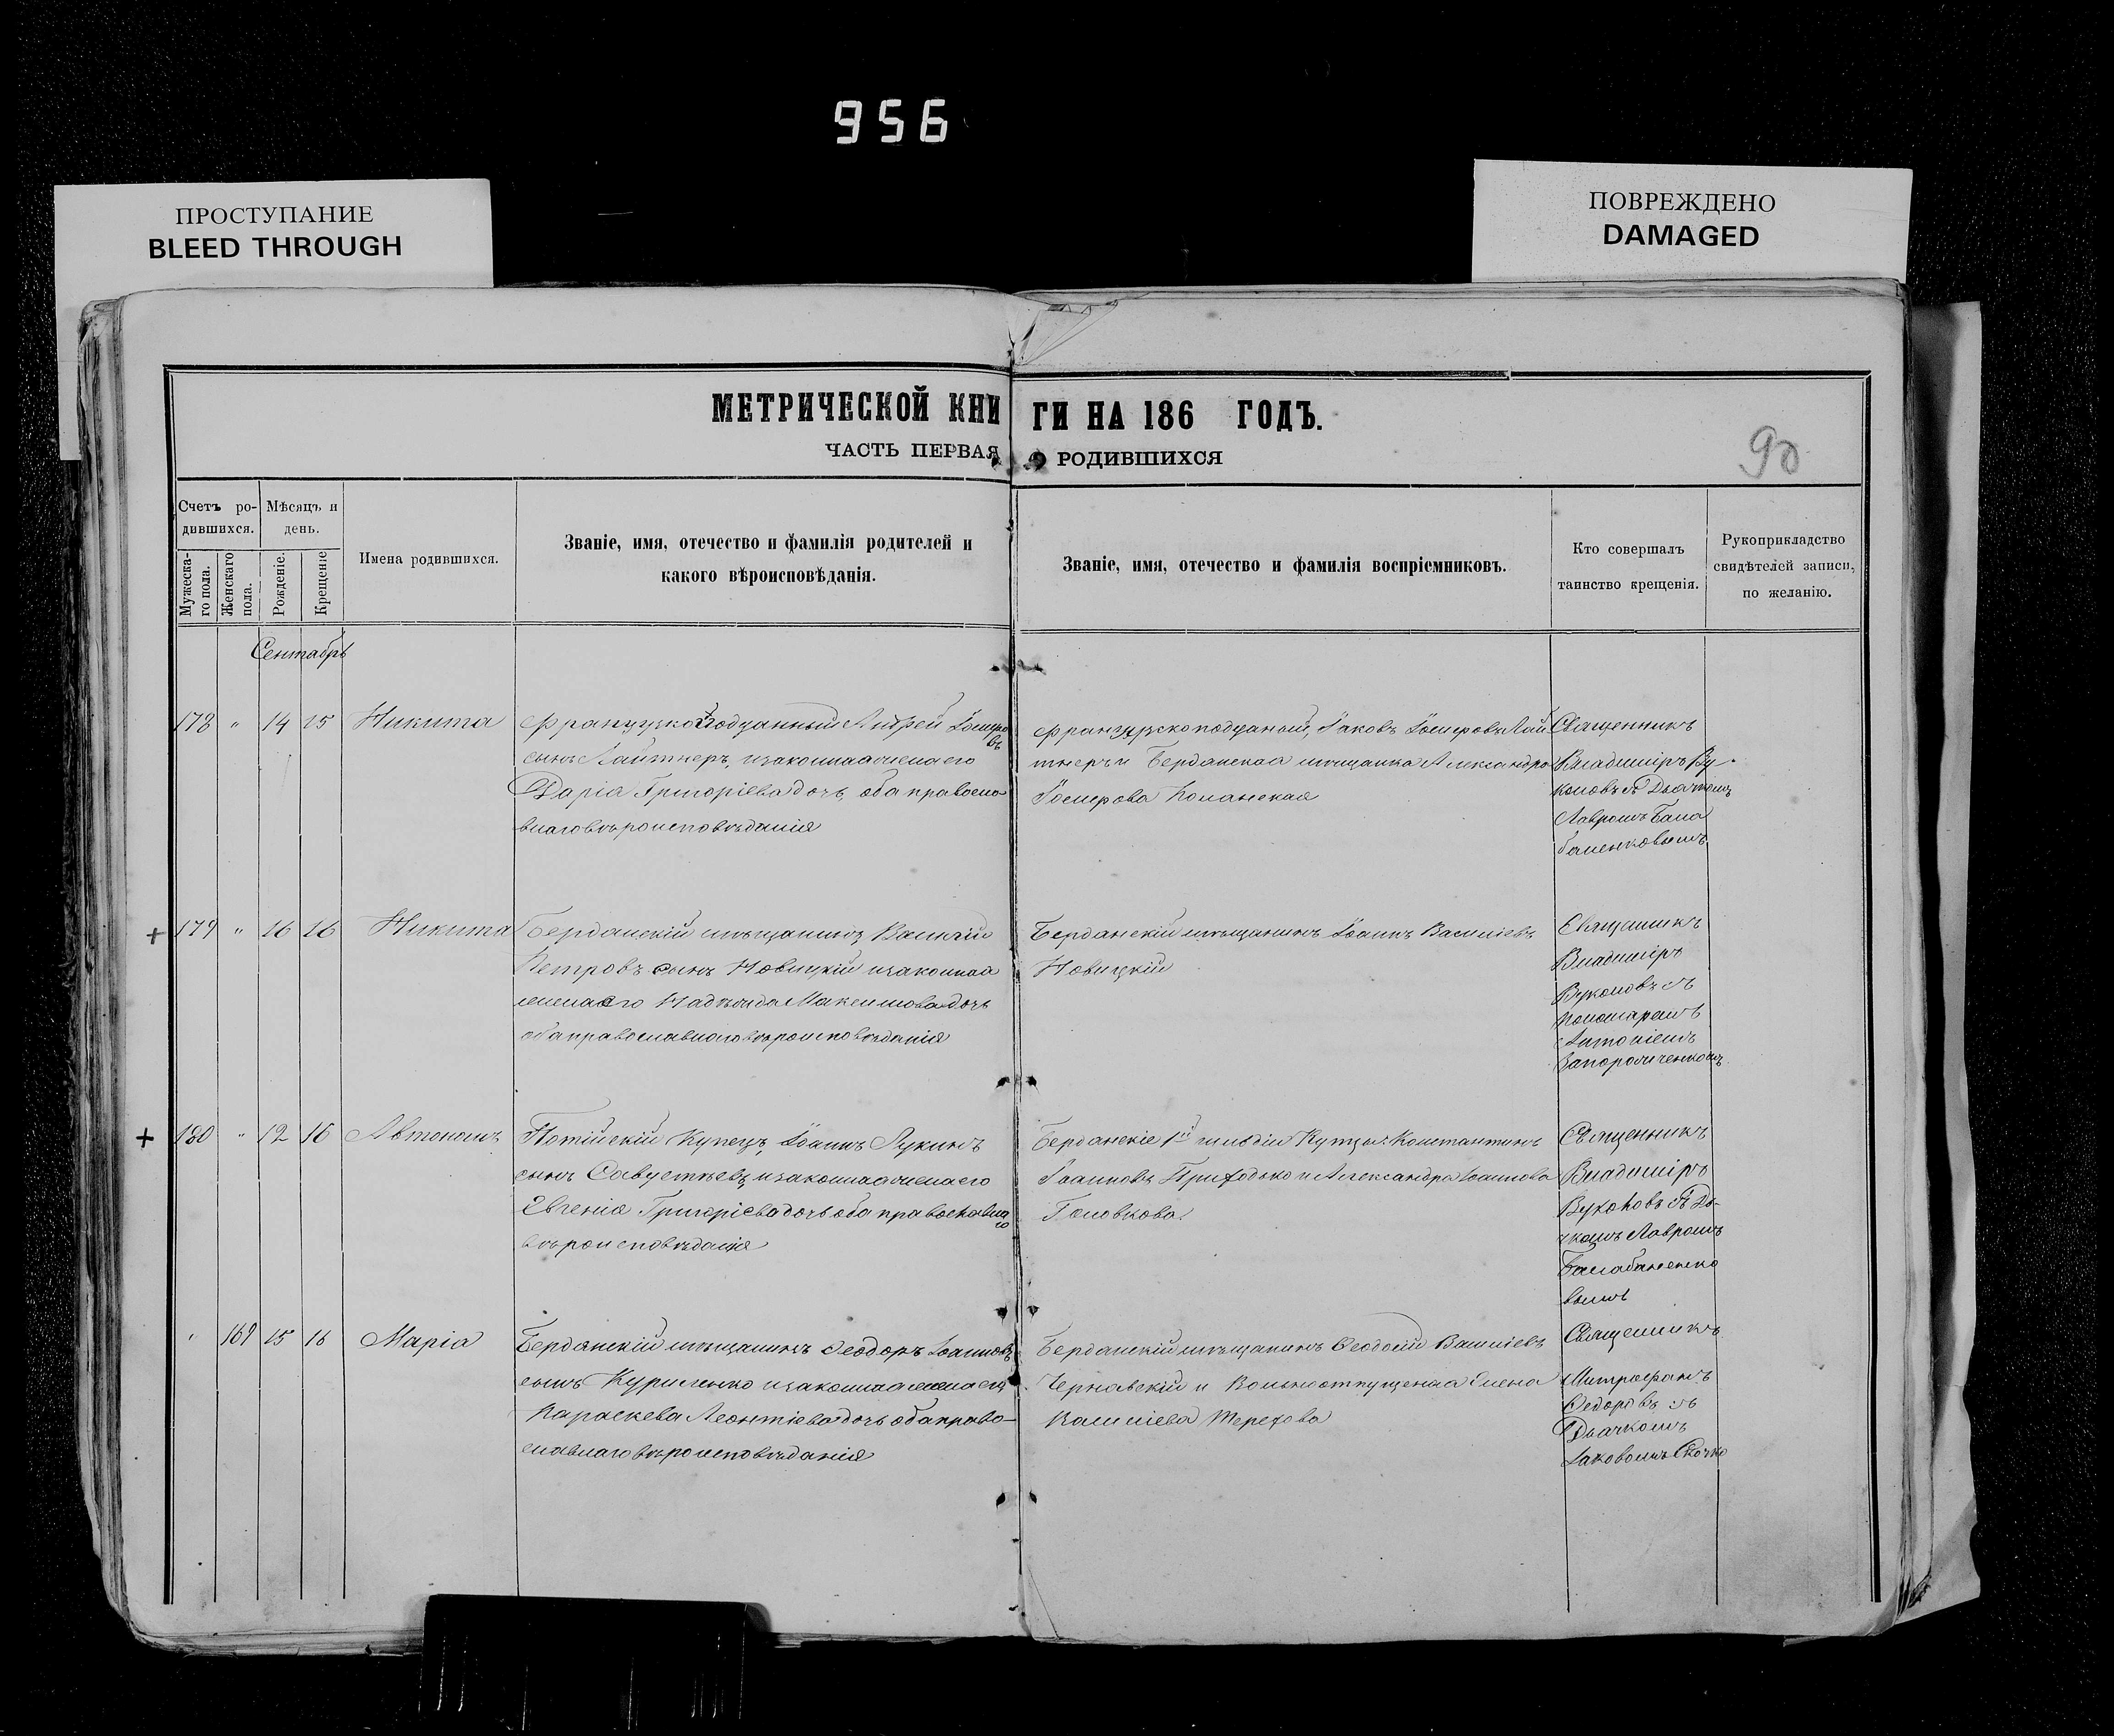 956
ПРОСТУПАНИЕ
BLEED THROUGH
ПОВРЕЖДЕНО
DAMAGED
МЕТРИЧЕСКОЙ КНИ ГИ НА 186 ГОДЪ.
ЧАСТЬ ПЕРВАЯ О РОДИВШИХСЯ
90
Счетъ ро-
дившихся.
Мужеска-
го пола.
Женскаго
пола.
Мѣсяцъ и
день.
Рожденіе.
Крещеніе
Имена родившихся.
Званіе, имя, отечество и фамилія родителей и
какого вѣроисповѣданія.
Званіе, имя, отечество и фамилія воспріемниковъ.
Кто совершалъ
таинство крещенія.
Рукоприкладство
свидѣтелей записи,
по желанію.
Сентябрь
178 " 14 15 Никита
Французкоподданный Андрей
сынъ Лайтнеръ, и законная жена его
Дарія Григоріева дочь, оба правосла
внаго вѣроисповѣданія
Французскоподданый, Іаковъ Лай
тнеръ и Бердянская мѣщанка Александра
Священникъ
Владиміръ Ву
коловъ съ Дьячкомъ
Лавромъ Бала
баненковымъ
+ 179 " 16 16 Никита
Бердянскій мѣщанинъ Василій
Петровъ сынъ Новицкій и законная
жена его Надежда Максимова дочь
оба православнаго вѣроисповѣданія
Бердянскій мѣщанинъ Іоаннъ Васильевъ
Новицкій
Священникъ
Владиміръ
Вуколовъ съ
Пономаремъ
Антоніемъ
+ 180 " 12 16 Автономъ
Купецъ, Іоаннъ Лукинъ
сынъ и законная жена его
Евгенія Григоріева дочь оба православна
го
вѣроисповѣданія
Бердянскіе 1й гильдіи Купцы Константинъ
Іоанновъ Приходько и Александра Іоаннова
Головкова.
Священникъ
Владиміръ
Вуколовъ съ Дь-
чкомъ Лавромъ
Балабаненко
вымъ
" 169 15 16 Марія
Бердянскій мѣщанинъ Феодоръ Іоанновъ
сынъ Куриленко и законная жена его
Параскева Леонтіева дочь оба право-
славнаго вѣроисповѣданія
Бердянскій мѣщанинъ Феодосій Васильевъ
Чернавскій и Вольноотпущеная Елена
Василіева Терехова
Священникъ
Митрофанъ
Федоровъ съ
Дьячкомъ
Іаковомъ